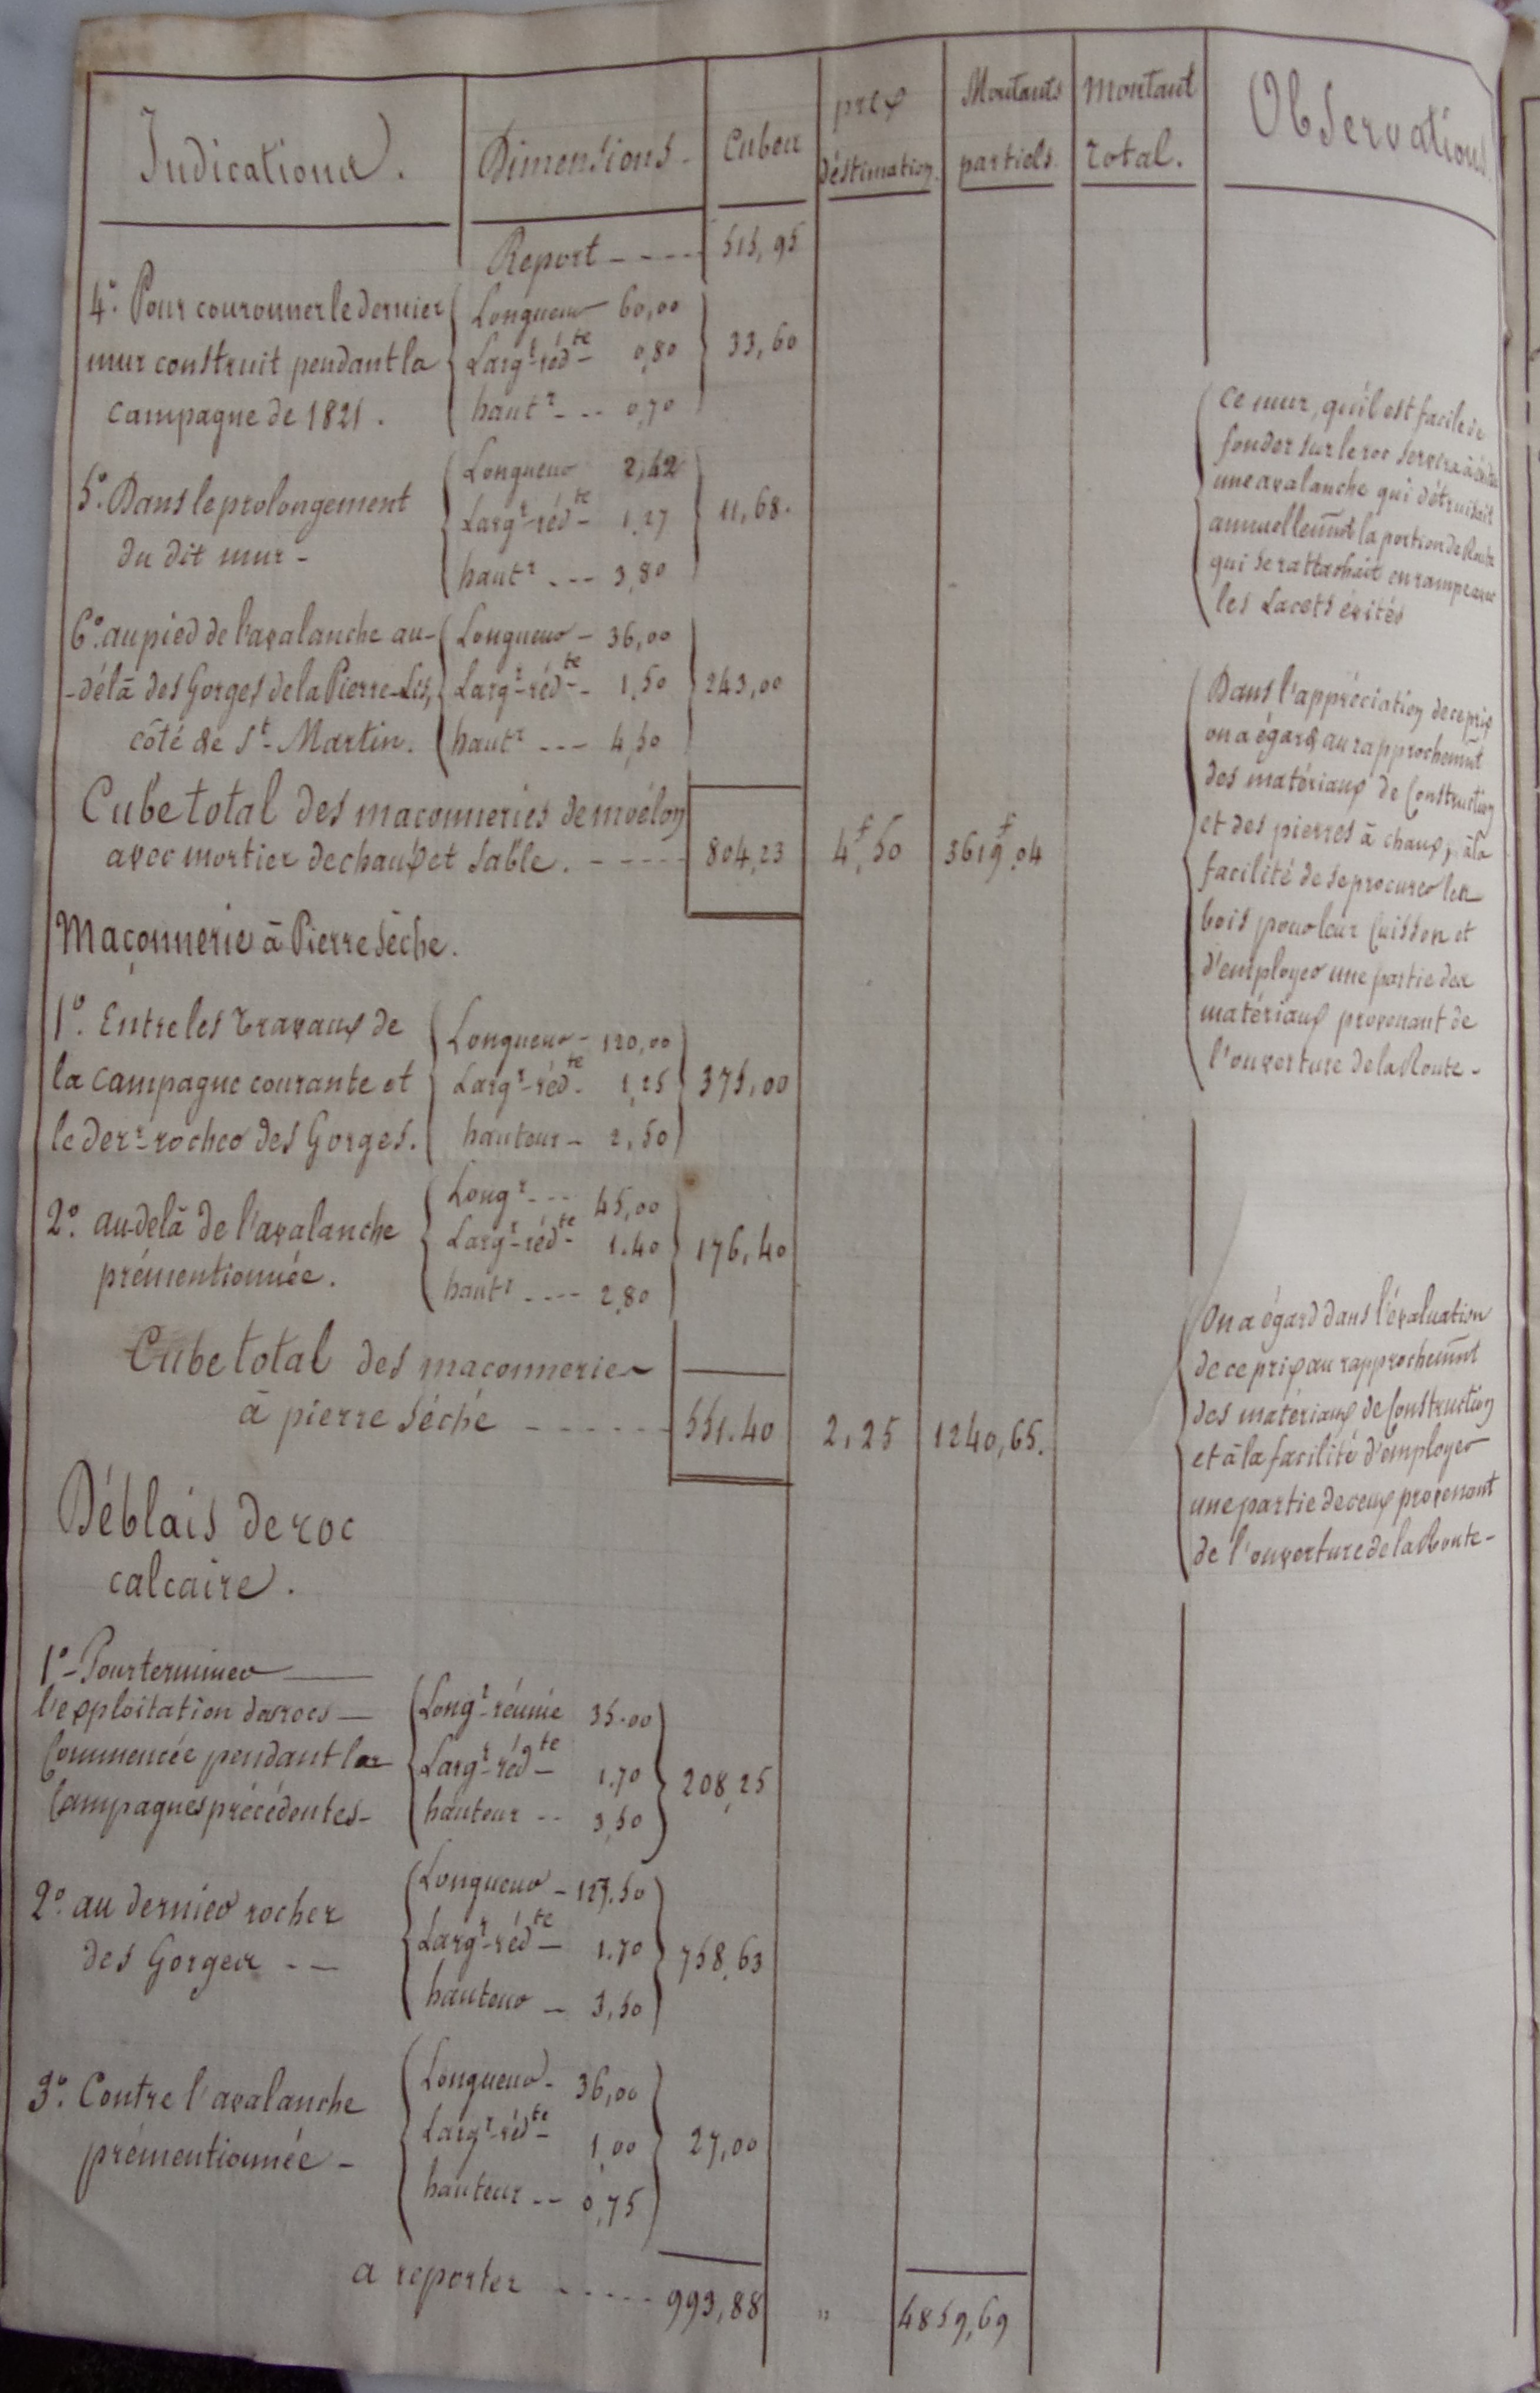 Indications. Dimensions. Cubes prix d'éstimation. Montants partiels. Montant total. Observations.
Report ---- 515,95
4°. Pour couronner le dernier Longueur 60,00
mur construit pendant la Largr réd.te 0,80 33,60
campagne de 1821. hautr --- 0,70
5°. Dans le prolongement Longueur 2,42
du dit mur - Largr réd.te 1,27 11,68.
hautr --- 3,80
Ce mur, qu'il est facile de
fonder sur le roc servira à éviter
une avalanche qui détruisait
annuellemnt la portion de Route
qui se rattachait en rampe avec
les Lacets évités
6°. au pied de l'avalanche au- Longueur - 36,00
-délà des Gorges de la Pierre-Lis, Largr réd.te - 1,50 243,00
côté de St. Martin. hautr --- 4,50
Cube total des maconneries de moélon
avec mortier de chaux et sable. ---- 804,23 4f,50 3619f,04
Dans l'appréciation de ce prix
on a égard au rapprochemnt
des matériaux de Construction
et des pierres à chaux, à la
facilité de se procurer les
bois pour leur Cuisson et
d'employer une partie des
matériaux provenant de
l'ouverture de la Route -
Maçonnerie à Pierre Sèche.
1°. Entre les travaux de Longueur - 120,00
la campagne courante et Largr réd.te - 1,25 375,00
le derr rocher des Gorges. hauteur - 2,50
2°. au-delà de l'avalanche Longr --- 45,00
prémentionnée. Largr réd.te - 1.40 176,40
hautr ---- 2,80
Cube total des maconneries
à pierre séche ------ 551.40 2,25 1240,65.
On a égard dans l'évaluation
de ce prix au rapprochemnt
des matériaux de Construction
et à la facilité d'employer
une partie de ceux provenant
de l'ouverture de la Route -
Déblais de roc
calcaire.
1° - Pour terminer
l'exploitation des rocs - Longr réunie 35.00
Commencée pendant les Largr réd.te - 1.70 208,25
Campagnes précédentes - hauteur -- 3,50
2°. au dernier rocher Longueur - 127.50
des Gorges -- Largr réd.te - 1.70 758,63
hauteur - 3,50
3°. Contre l'avalanche Longueur - 36,00
prémentionnée - Largr réd.te - 1,00 27,00
hauteur -- 0,75
a reporter ----- 993,88 " 4859,69